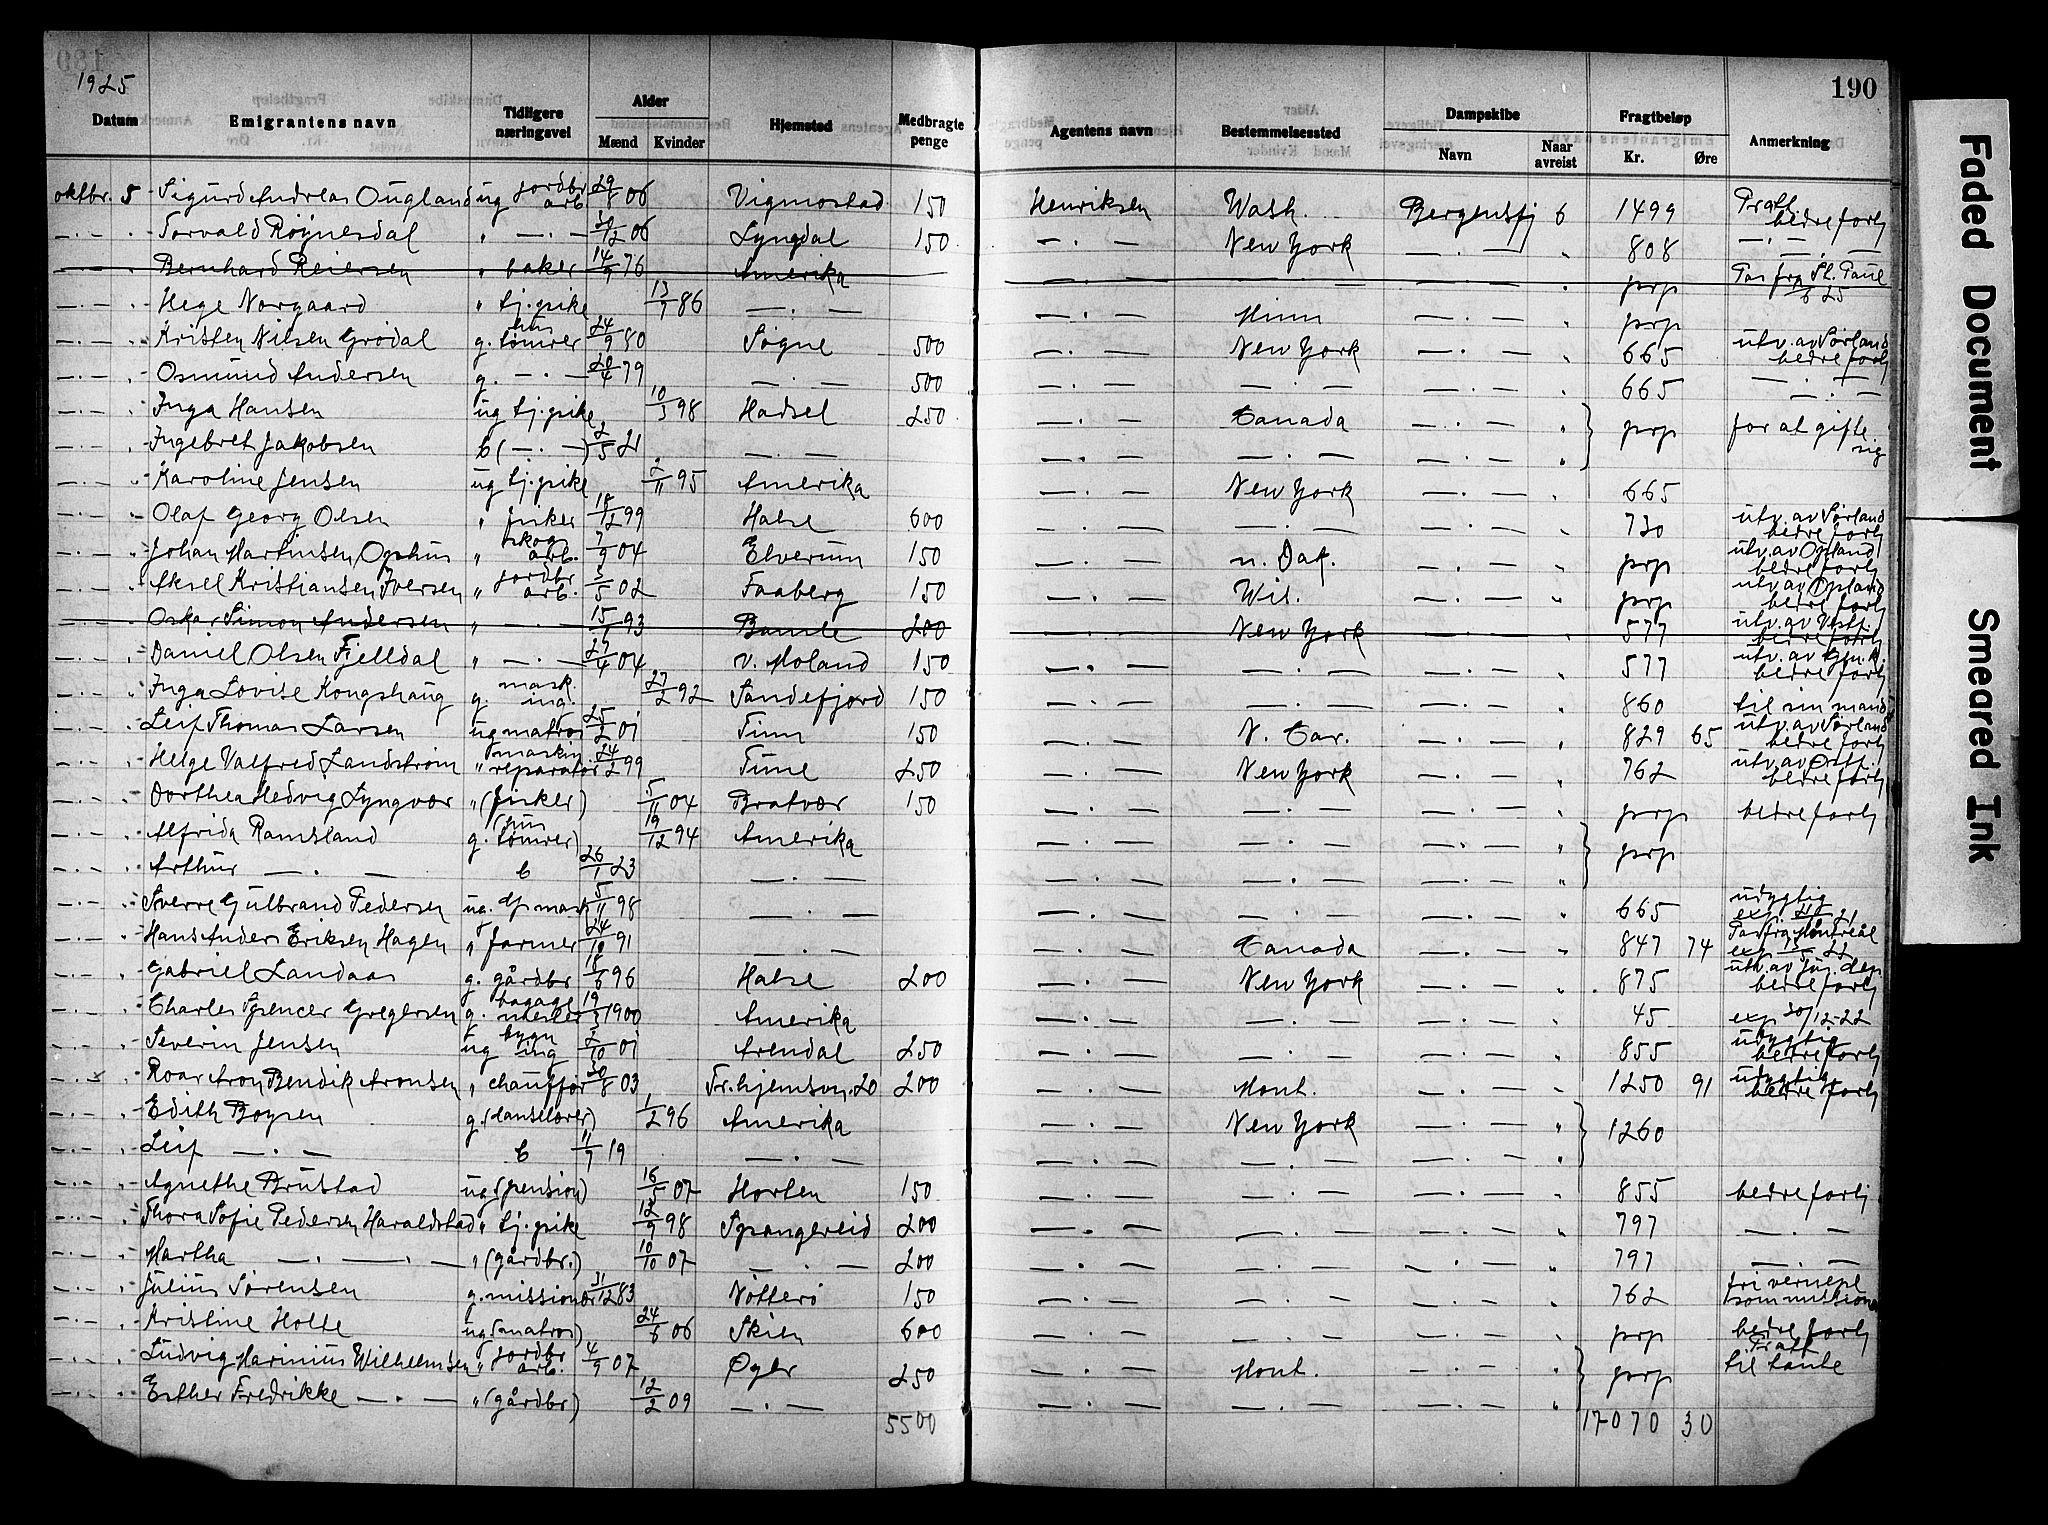 190
1925
Datum Emigrantens navn Tidligere næringsvei Alder Mænd Kvinder Hjemsted Medbragte penge Agentens navn Bestemmelsessted Dampskibe Navn Naar avreist Fragtbeløp Kr. Øre Anmerkning
oktbr. 5 Sigurd Andreas Ougland ug jordbr arb 29/8 06 Vigmostad 150 Henriksen Wash. Bergensfj 6 1499 Pratt bedre forhj
— . — " Torvald Røynesdal " — . — /12 06 Lyngdal 150 — . — New York — . — " 808 — . —
— . — " Bernhard Reiersen " baker 14/9 76 Amerika — . — — . — — . — " prp Pas fra St. Paul /6 25
— . — " Hege Norgaard " tj.pike 13/7 86 — . — — . — Minn — . — " prp
— . — " Kristen Nilsen Grødal g. hus tømrer 24/9 80 Søgne 500 — . — New York — . — " 665 utv. av Sørland bedre forhj
— . — " Osmund Andersen g. — . — 28/4 79 — . — 500 — . — — . — — . — " 665 — . —
— . — " Inga Hansen ug tj.pike 10/3 98 Hadsel 250 — . — Canada — . — " prp for at gifte sig
— . — " Ingebret Jakobsen b (— . —) 2/5 21 — . — — . — — . — — . — "
— . — " Karoline Jensen ug tj.pike 2/11 95 Amerika — . — New York — . — " 665
— . — " Olaf Georg Olsen " fisker 18/12 99 Halse 600 — . — — . — — . — " 730 utv. av Sørland bedre forhj
— . — " Johan Martinsen Opshus " skog arb. 7/9 04 Elverum 150 — . — n. Dak. — . — " prp utv. av Opland bedre forhj
— . — " Aksel Kristiansen Iversen " jordbr arb. 3/5 02 Faaberg 150 — . — Wis. — . — " prp utv. av Opland bedre forhj
— . — " Oskar Simon Andersen " — . — 15/1 93 Bamle 200 — . — New York — . — " 577 utv. av Vestf. bedre forhj
— . — " Daniel Olsen Fjelldal " — . — 27/4 04 v. Moland 150 — . — — . — — . — " 577 utv. av Gen.k. bedre forhj
— . — " Inga Lovise Kongshaug g. mask. ing. 27/2 92 Sandefjord 150 — . — — . — — . — " 860 til sin mand
— . — " Leif Thomas Larsen ug matros 25/2 01 Tinn 150 — . — N. Car. — . — " 829 65 utv. av Sørland bedre forhj
— . — " Helge Valfred Landstrøm " maskin reparatør 24/2 99 Tune 250 — . — New York — . — " 762 utv. av Østf. bedre forhj
— . — " Dorthea Hedvig Lyngvær " (fisker) 5/11 04 Bratvær 150 — . — — . — — . — " prp bedre forhj
— . — " Alfrida Ramsland g. (hus tømrer) 19/12 94 Amerika — . — — . — — . — " prp
— . — " Arthur — . — b 26/1 23 — . — — . — — . — — . — "
— . — " Sverre Gulbrand Pedersen ug. mask 5/11 98 — . — — . — — . — — . — " 665 udygtig exp. 21
— . — " Hans Anders Eriksen Hagen " farmer 24/10 91 — . — — . — Canada — . — " 847 74 Pas fra Montreal exp. 22
— . — " Gabriel Landaas g. gårdbr 18/6 96 Halse 200 — . — New York — . — " 875 utv. av Jus. dep bedre forhj
— . — " Charles Spencer Gregersen g. bagage mester 19/3 1900 Amerika — . — — . — — . — " 45 exp 30/12-22
— . — " Severin Jensen ug bygn ing 2/10 01 Arendal 250 — . — — . — — . — " 855 udygtig bedre forhj
— . — " Roar Aron Bendik Aronsen " chauffør 30/8 03 Fr.hjemsvn. 20 200 — . — Mont. — . — " 1250 91 udygtig bedre forhj
— . — " Edith Boysen g. (danselærer) 1/2 96 Amerika — . — New York — . — " 1260
— . — " Leif — . — b 11/7 19 — . — — . — — . — — . — "
— . — " Agnethe Brustad ug (pension) 16/5 07 Horten 150 — . — — . — — . — " 855 bedre forhj
— . — " Thora Sofie Pedersen Haraldstad " tj.pike 12/9 98 Spangereid 200 — . — — . — — . — " 797 — . —
— . — " Martha — . — . — " (gårdbr.) 10/10 07 — . — 200 — . — — . — — . — " 797 — . —
— . — " Julius Sørensen g. missionær 31/12 83 Nøtterø 150 — . — — . — — . — " 762 fri vernepl
— . — " Kristine Holte ug (matros) 24/6 06 Skien 600 — . — — . — — . — " prp bedre forhj
— . — " Ludvig Marinius Wilhelmsen " jordbr arb. 4/9 07 Øyer 250 — . — Mont. — . — " prp Pratt til tante
— . — " Esther Fredrikke — . — " (gårdbr) 12/2 09 — . — — . — — . — — . — "
5500 17070 30
Faded Document
Smeared Ink